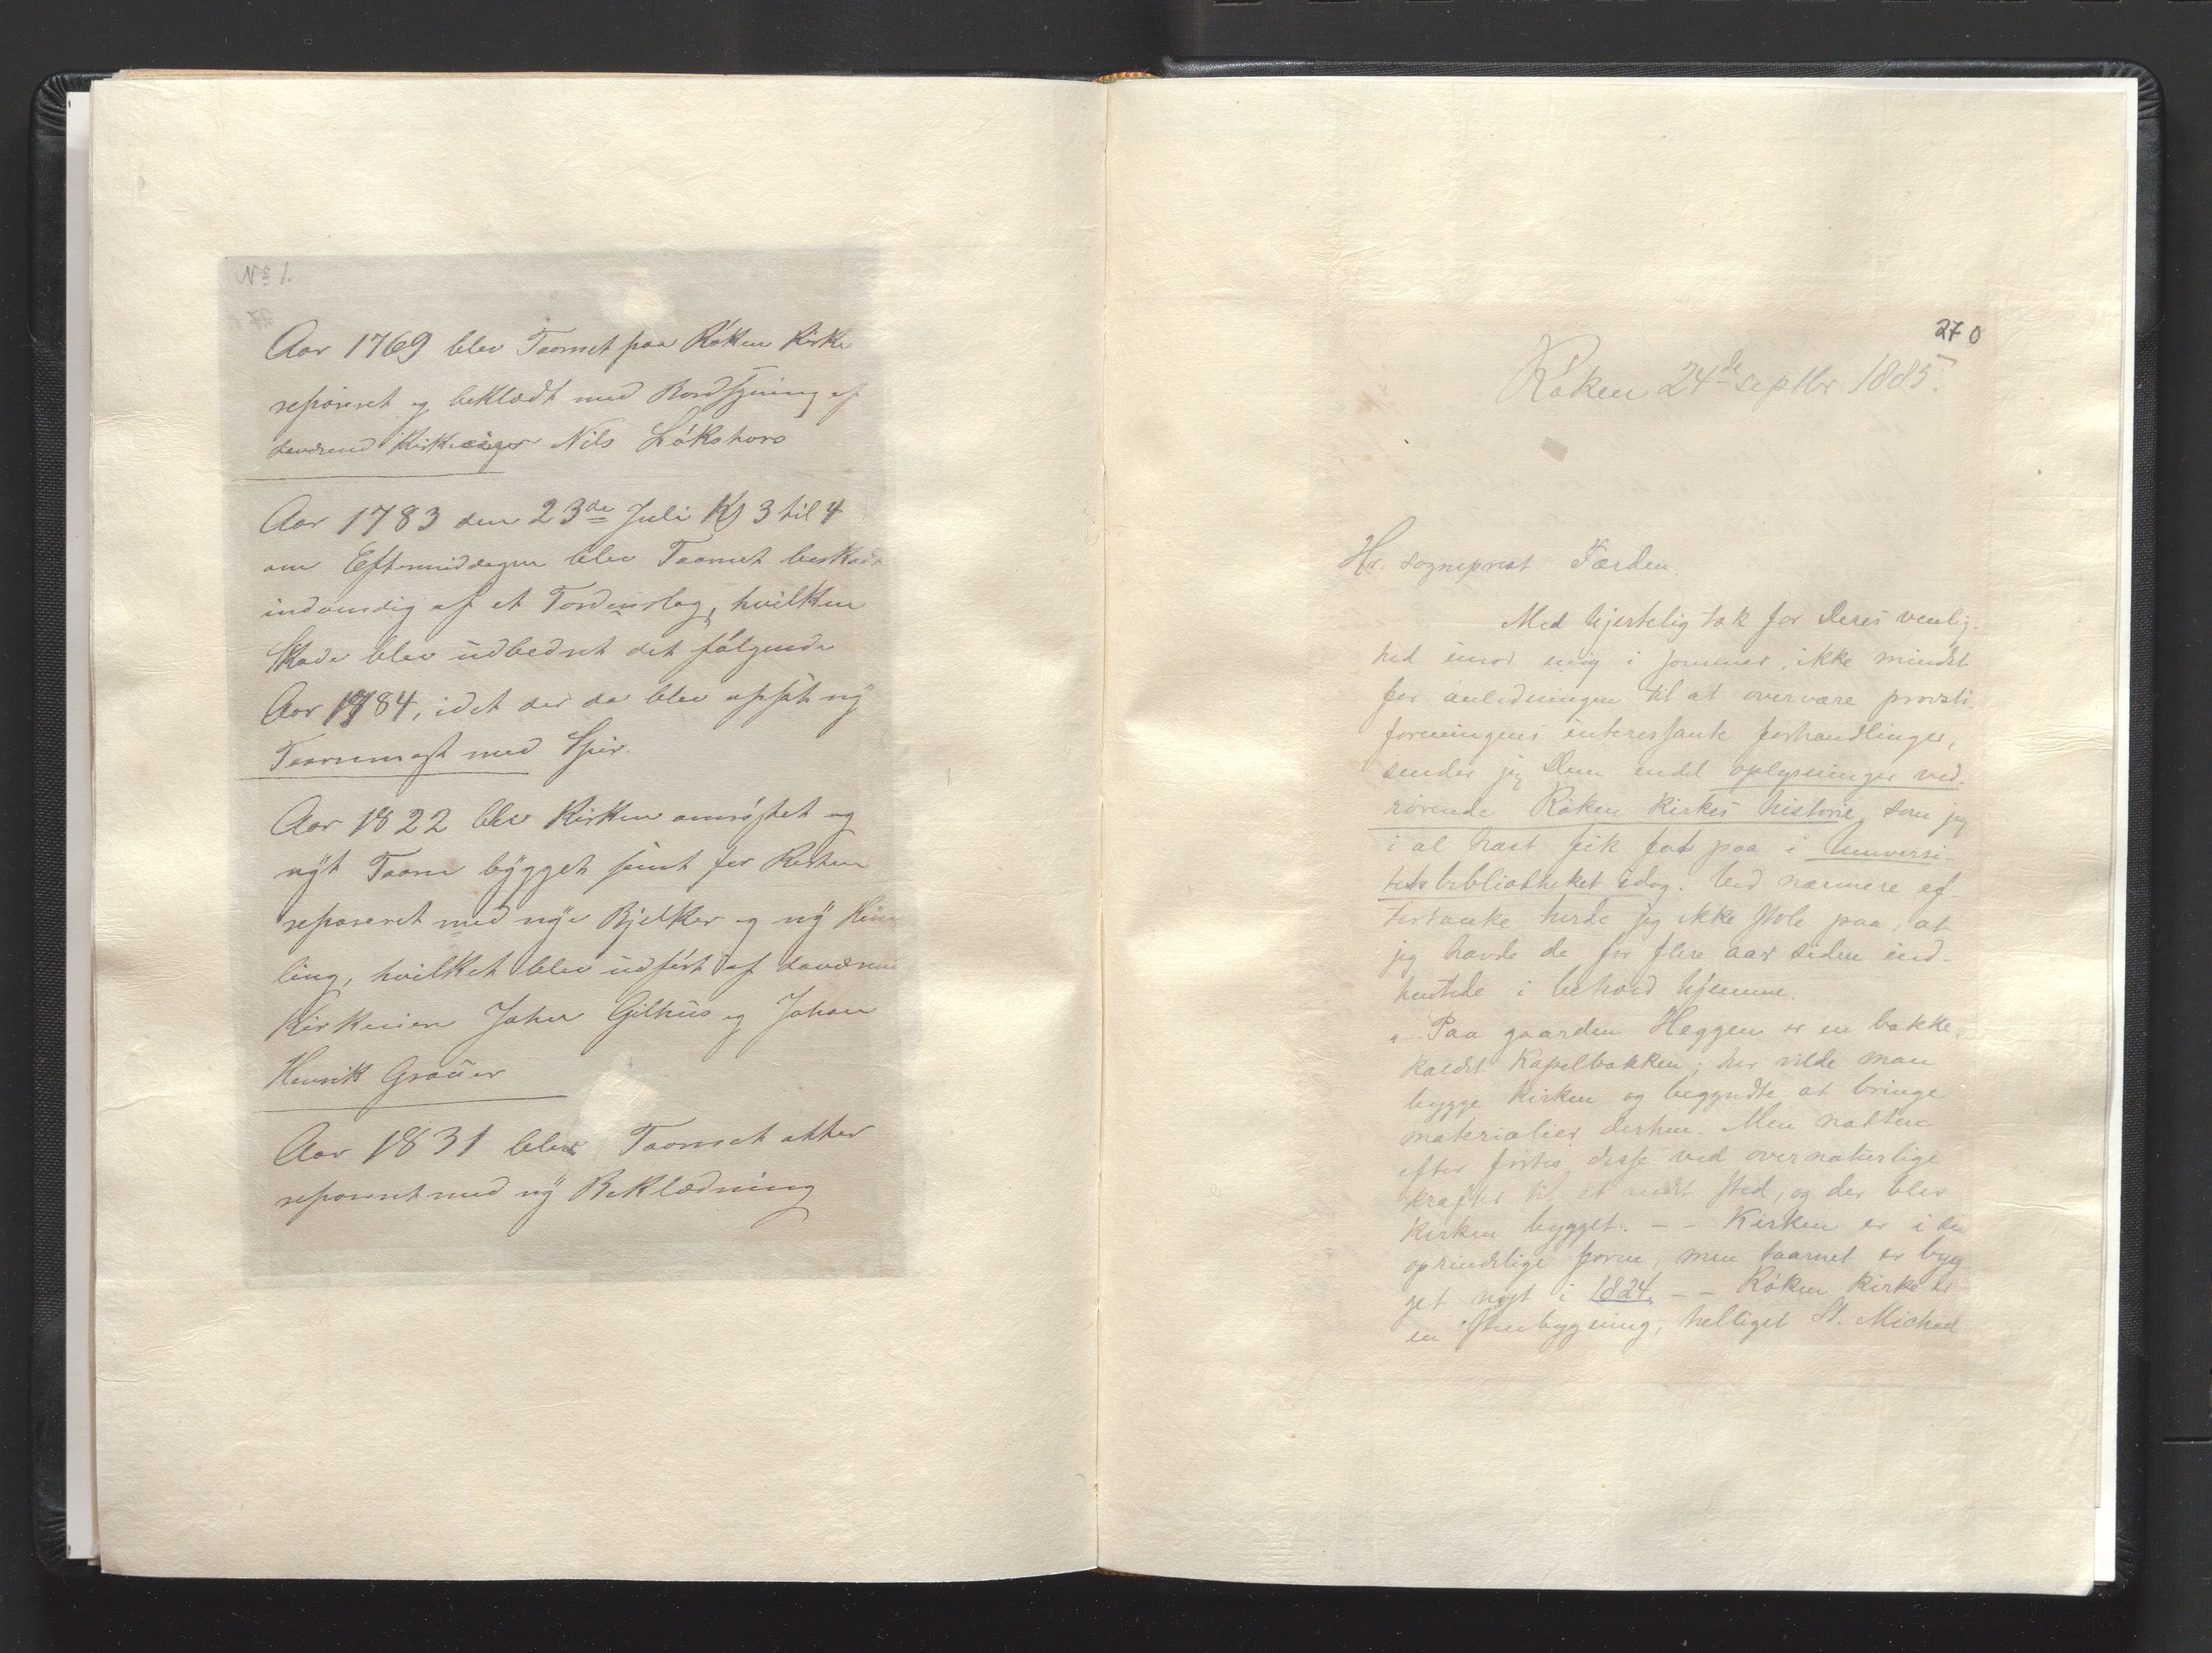 No 1.
Aar 1769 blev Taarnet paa Röken Kirke
repareret og beklædt med Bordtzning af
daværend Kirkeeiger Nils
Aar 1783 den 23de Juli Kl 3 til 4
om Eftermiddagen blev Taarnet beskadt
indvendig af et Tordenslag, hvilken
Skade blev udbedret det følgende
Aar 1784, idet der da blev opsat ny
Taarnmast med Spir.
Aar 1822 blev Kirken omrøstet og
nyt Taarn bygget samt for Resten
repareret med nye Bjelker og ny Him
ling, hvilket blev udført af daværen
Kirkeeien Gilhus og Johan
Henrik Grauer
Aar 1831 blev Taarnet atter
reparert med ny Beklædning
270
Röken 24de septbr. 1885.
Hr. sogneprest Færden.
Med hjertelig tak for Deres venlig-
hed imod mig i sommer, ikke mindst
for anledningen til at overvære provsti-
foreningens interessante forhandlinger,
sender jeg Dem endel oplysninger ved-
rørende Röken kirkes historie, som jeg
i al hast fik fat paa i Universi-
tetsbibliotheket idag. Ved nærmere ef-
tertanke turde jeg ikke stole paa, at
jeg havde de for flere aar siden ind-
hentede i behold hjemme.
"- Paa gaarden Heggen er en bakke,
kaldt Kapelbakken; her vilde man
bygge kirken og begyndte at bringe
materialier derhen. Men natten
efter førtes disse ved overnaturlige
kræfter til et andet sted, og der blev
kirken bygget. - - Kirken er i sin
oprindelige form, men taarnet er byg
get nyt i 1824. - - Röken kirke er
en stenbygning, helliget St. Michael